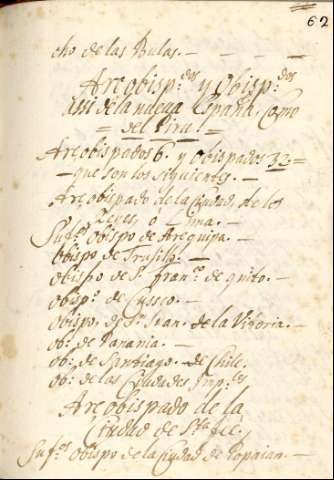 62
cho de las Bulas. —
Arçobisp.dos y Obisp.dos
asi de la nueva España. Como
= del Piru! =
Arçobispados 6. y Obispados 32 —
— que son los siguientes. —
Arçobispado de la Ciudad de los
Reyes, ó Lima. —
Suf.os Obispo de Arequipa. —
Obispo de Trusillo —
obispo de S. Fran.co de quito. —
obisp.o de Cussco. —
Obispo, de S. Juan. de la Vitoria. —
ob.o de Panama. —
ob.o de Santiago. de Chile.
ob.o de las Ciudades Imp.les
Arçobispado de la
Ciudad de S.ta fee. —
Suf.os Obispo de la Ciudad de Popaian. —